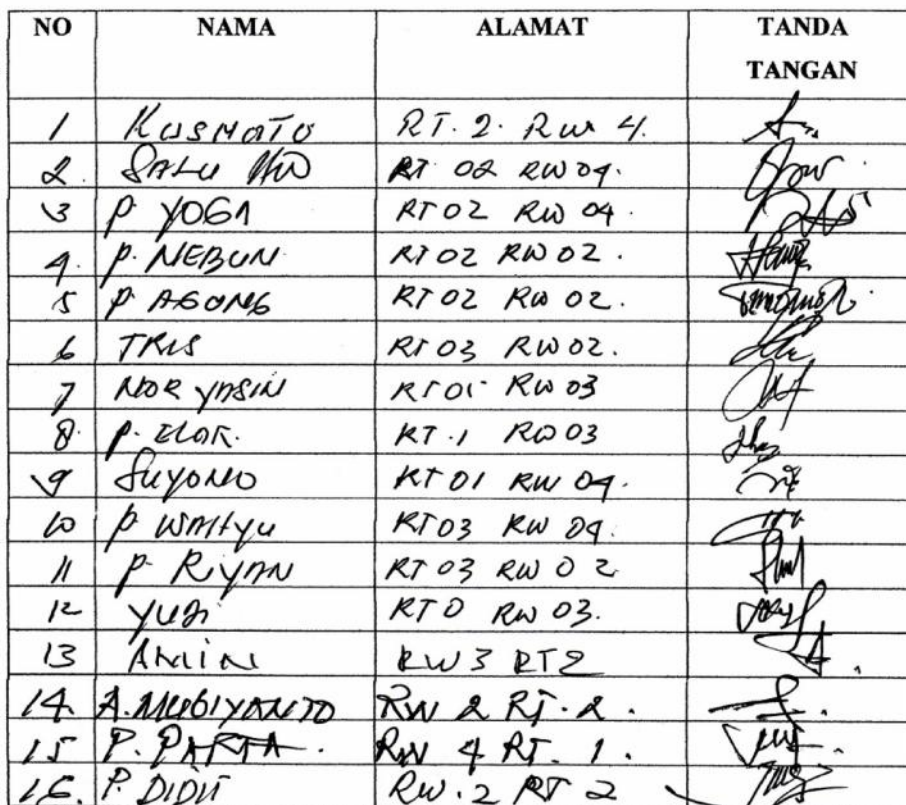 NO NAMA ALAMAT TANDA TANGAN
1 KUSMOTO RT. 2. RW 4.
2. RT 02 RW 04.
3 P. YOGA RT 02 RW 04.
4. P. NEBUN RT 02 RW 02.
5 P AGONG RT 02 RW 02.
6 TRIS RT 03 RW 02.
7 NOR YASIN RT 01 RW 03
8. P. ELOK. RT.1 RW 03
9 SUYONO RT 01 RW 04.
10 P WAHYU RT 03 RW 04.
11 P. RIYAN RT 03 RW 02
12 YUDI RT 0 RW 03.
13 AMINI RW 3 RT 2
14. A. MUGIYANTO RW 2 RT. 2.
15 P. PARTA. RW 4 RT. 1.
16. P. DIDIT RW. 2 RT 2